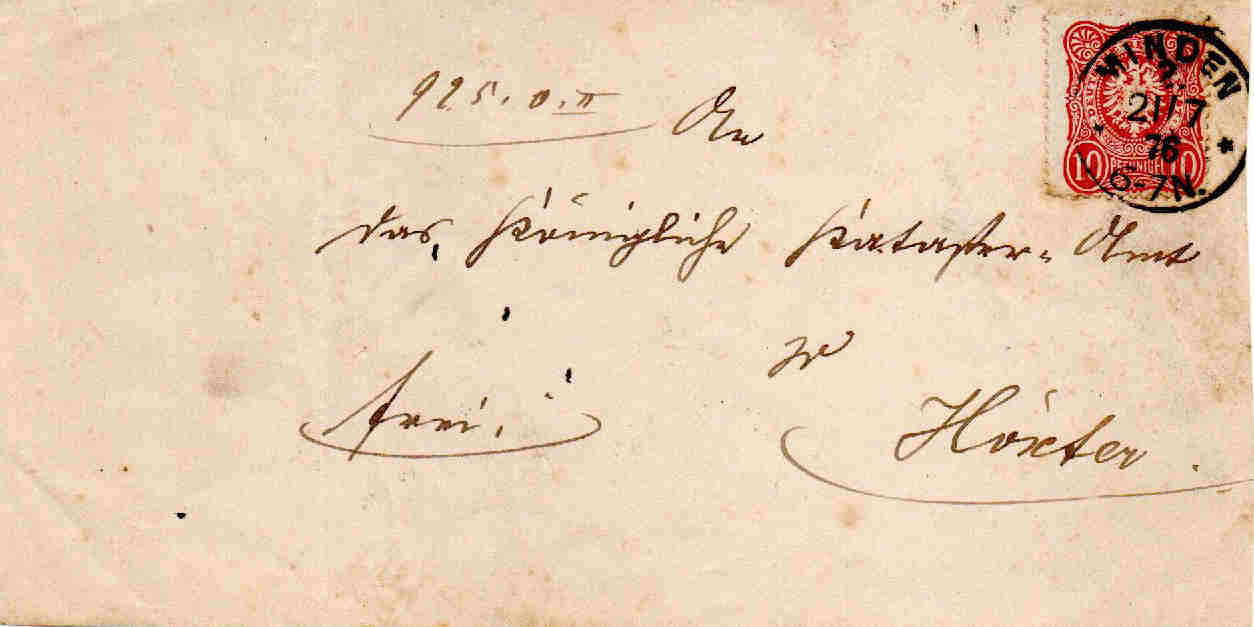 925. II
An
das Königliche Kataster-Amt
zu
frei.
Höxter.
MINDEN
21/7
76
6-7N.
10 PFENNIG 10